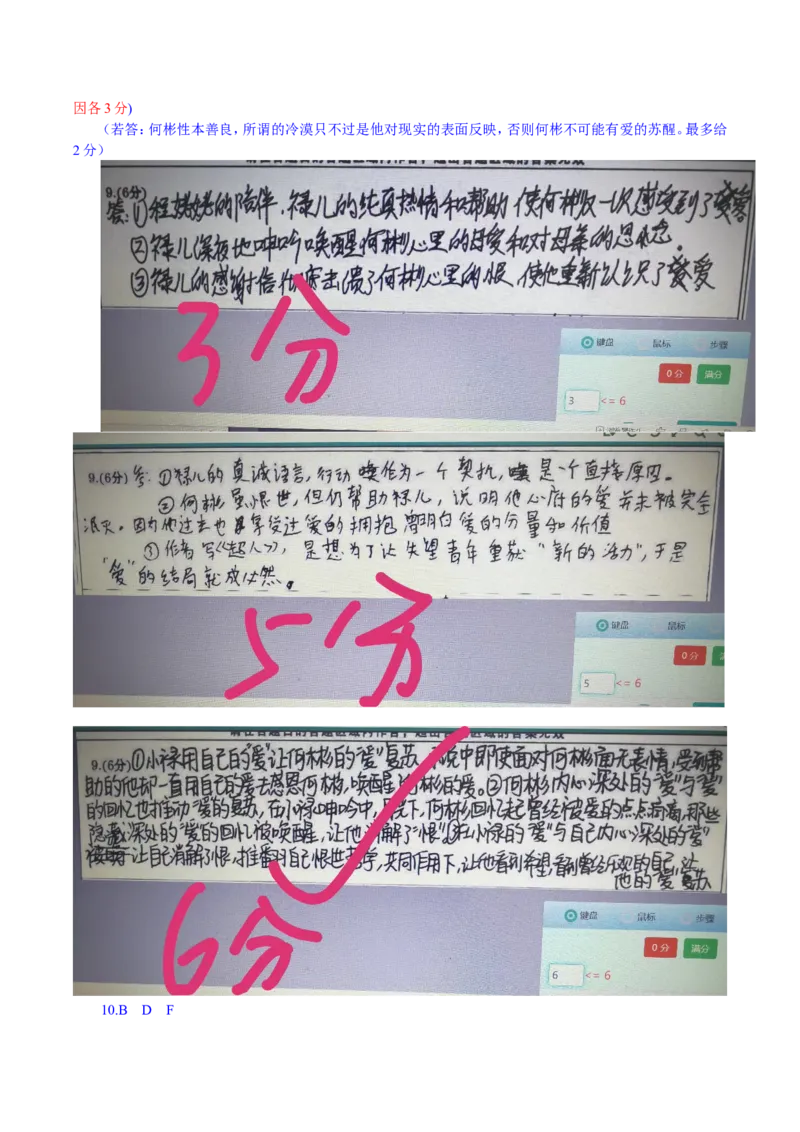 因各3分)
（若答：何彬性本善良，所谓的冷漠只不过是他对现实的表面反映，否则何彬不可能有爱的苏醒。最多给
2分）
9.(6分)
答：①程姥姥的陪伴、禄儿的纯真热情和帮助使何彬又一次感受到了爱
②禄儿深夜地呻吟唤醒何彬心里的母爱和对母亲的思念。
③禄儿的感谢信彻底击溃了何彬心里的恨，使他重新认识了爱
3分
键盘 鼠标 步骤
0分 满分
3 <= 6
9.(6分) 答：①禄儿的真诚语言，行动唤作为一个契机，是一个直接原因。
②何彬虽恨世，但仍帮助禄儿，说明他心底的爱并未被完全
泯灭。因为他过去也享受过爱的拥抱，明白爱的分量和价值
③作者写《超人》，是想为了让失望青年重获“新的活力”，于是
“爱”的结局就成必然。
5分
键盘 鼠标
0分
5 <= 6
9.(6分)①小禄用自己的“爱”让何彬的“爱”复苏，小说中即使面对何彬面无表情，受到帮
助的他却一直用自己的爱去感恩何彬，唤醒何彬的爱。②何彬内心深处的“爱”与“爱”
的回忆也推动“爱”的复苏，在小禄呻吟中，月光下，何彬回忆起曾经被爱的点点滴滴，那些
隐藏深处的“爱”的回忆被唤醒，让他消解了“恨”③在小禄的“爱”与自己内心深处的“爱”
让自己消解了恨，推翻自己恨世哲学，共同作用下，让他看到希望，看到曾经乐观的自己，让
他的“爱”复苏
6分
键盘 鼠标 步骤
0分 满分
6 <= 6
10.B D F